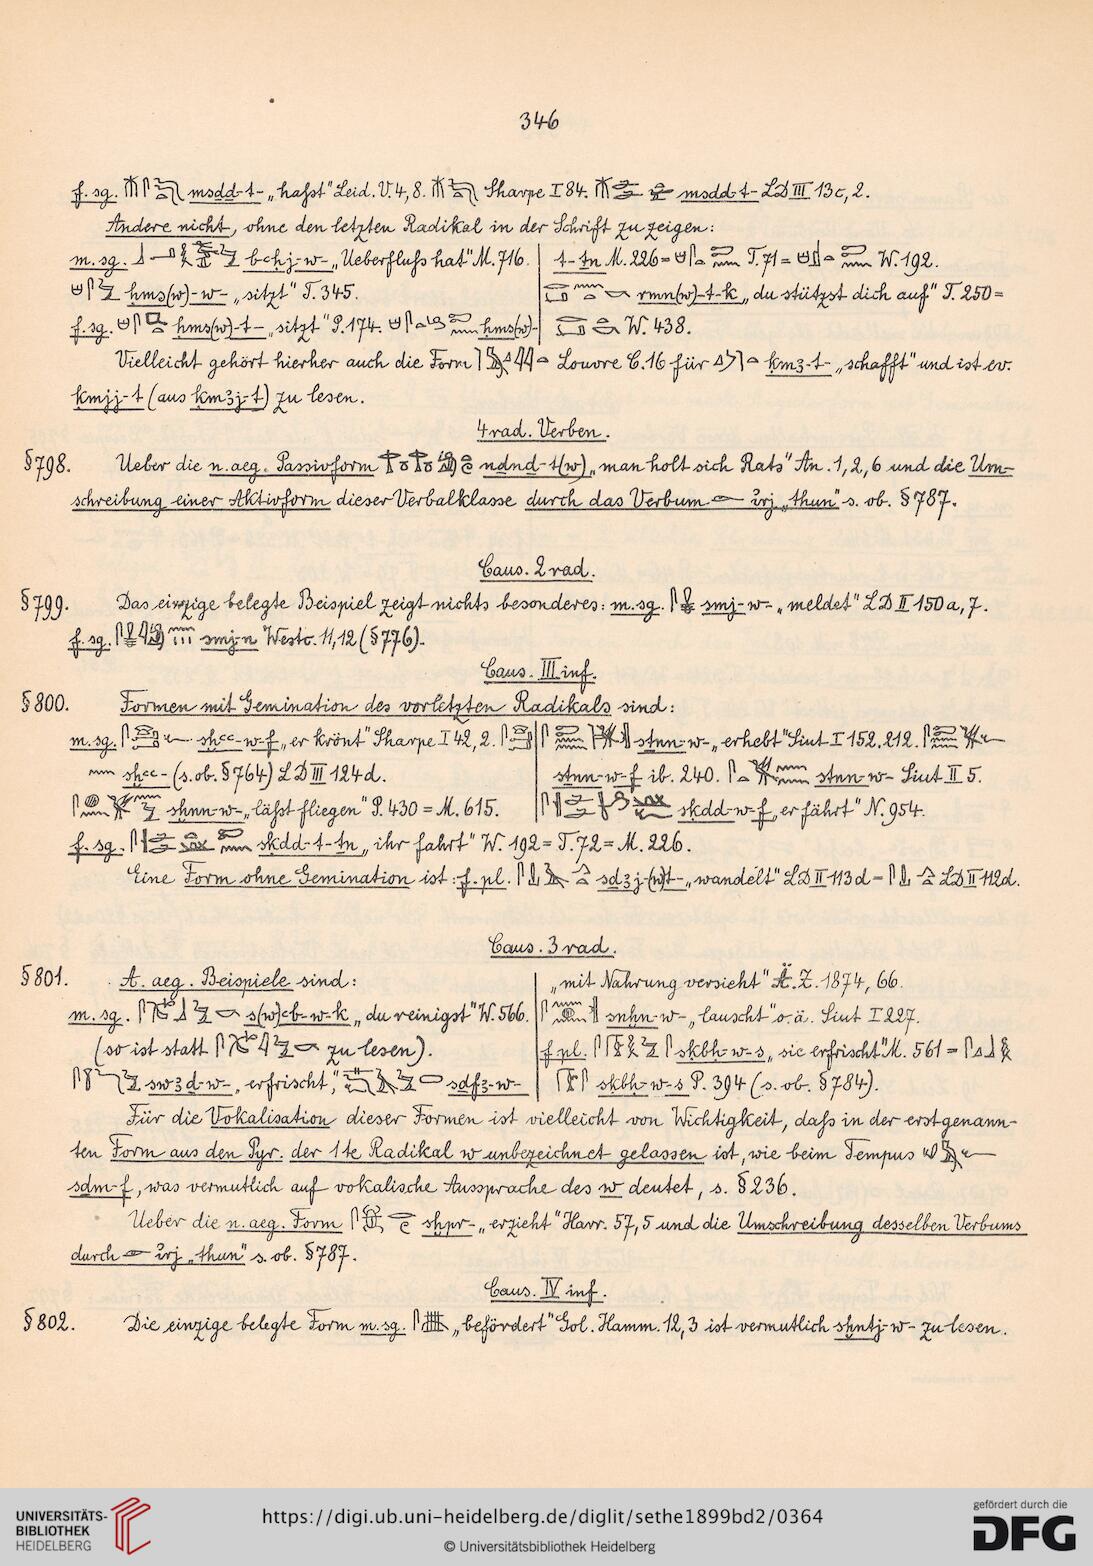 346
f. sg. msdd-t- „hasst" Leid. V. 4, 8. Sharpe I 84. msdd-t- LD III 13c, 2.
Andere nicht, ohne den letzten Radikal in der Schrift zu zeigen:
m. sg. bꜥḥj-w- „Ueberfluss hat" M. 716.
ḥms(w)-w- „sitzt" T. 345.
f. sg. ḥms(w)-t- „sitzt" P. 174. ḥms(w)-
t-tn M. 226 = T. 71 = W. 192.
rmn(w)-t-k „du stützst dich auf" T. 250 =
W. 438.
Vielleicht gehört hierher auch die Form Louvre C. 16 für ḳmꜣ-t- „schafft" und ist ev.
ḳmjj-t (aus ḳmꜣj-t) zu lesen.
4rad. Verben.
§798. Ueber die n. aeg. Passivform ndnd-t(w) „man holt sich Rats" An. 1, 2, 6 und die Um-
schreibung einer Aktivform dieser Verbalklasse durch das Verbum ı͗rj „thun" s. ob. §787.
Caus. 2rad.
§799. Das einzige belegte Beispiel zeigt nichts besonderes: m. sg. smj-w- „meldet" LD II 150a, 7.
f. sg. smj-n Westc. 11, 12 (§776).
Caus. III inf.
§800. Formen mit Gemination des vorletzten Radikals sind:
m. sg. sḫꜥꜥ-w-f „er krönt" Sharpe I 42, 2.
sḫꜥꜥ- (s. ob. §764) LD III 124d.
sḫnn-w- „lässt fliegen" P. 430 = M. 615.
stnn-w- „erhebt" Siut I 152. 212.
stnn-w-f ib. 240. stnn-w- Siut II 5.
sḳdd-w-f „er fährt" N. 954.
f. sg. sḳdd-t-tn „ihr fahrt" W. 192 = T. 72 = M. 226.
Eine Form ohne Gemination ist: f. pl. sdꜣj-(w)t- „wandelt" LD II 113d = LD II 112d.
Caus. 3rad.
§801. A. aeg. Beispiele sind:
m. sg. s(w)ꜥb-w-k „du reinigst" W. 566.
(so ist statt zu lesen).
swꜣd-w- „erfrischt", sdfꜣ-w-
„mit Nahrung versieht" Ä. Z. 1874, 66.
snhn-w- „lauscht" o. ä. Siut I 227.
f. pl. sḳbḥ-w-s „sie erfrischt" M. 561 =
sḳbḥ-w-s P. 394 (s. ob. §784).
Für die Vokalisation dieser Formen ist vielleicht von Wichtigkeit, dass in der erstgenann-
ten Form aus den Pyr. der 1te Radikal w unbezeichnet gelassen ist, wie beim Tempus
sḏm-f, was vermutlich auf vokalische Aussprache des w deutet, s. §236.
Ueber die n. aeg. Form sḫpr- „erzieht" Harr. 57, 5 und die Umschreibung desselben Verbums
durch ı͗rj „thun" s. ob. §787.
Caus. IV inf.
§802. Die einzige belegte Form m. sg. „befördert" Gol. Hamm. 12, 3 ist vermutlich sḫntj-w- zu lesen.
UNIVERSITÄTS-
BIBLIOTHEK
HEIDELBERG
https://digi.ub.uni-heidelberg.de/diglit/sethe1899bd2/0364
© Universitätsbibliothek Heidelberg
gefördert durch die
DFG